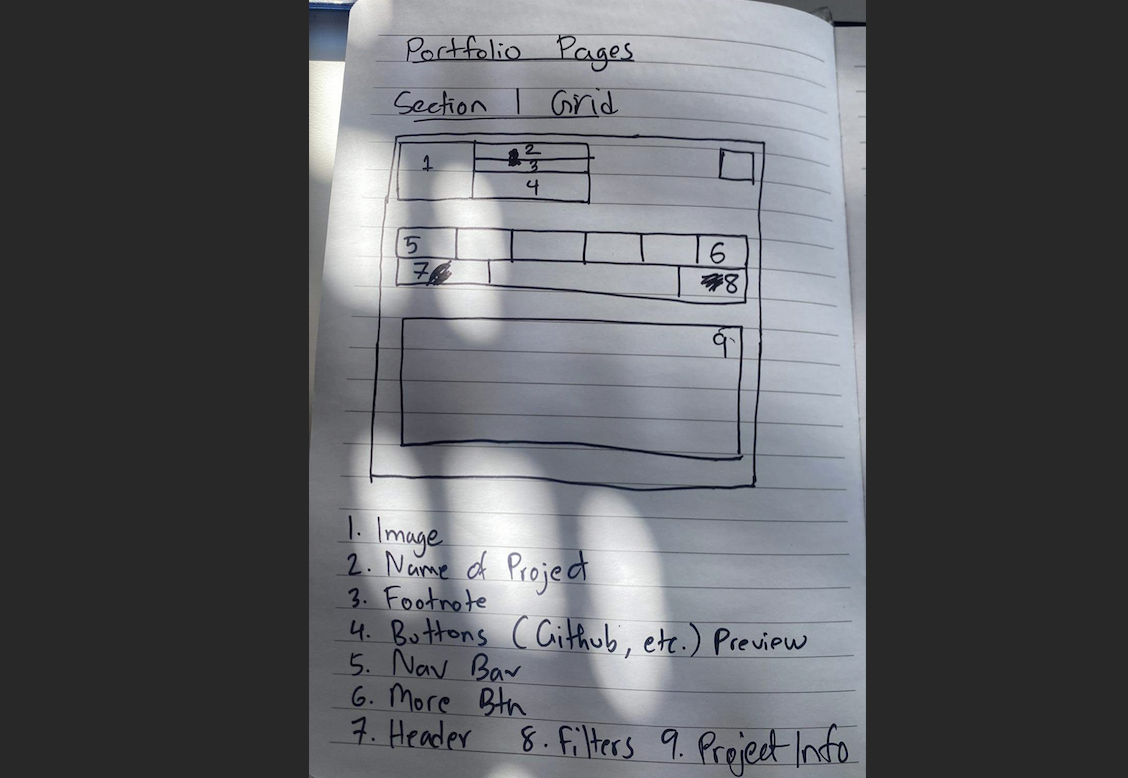 Portfolio Pages
Section 1 Grid
1
2
3
4
5
6
7
8
9
1. Image
2. Name of Project
3. Footnote
4. Buttons (Github, etc.) Preview
5. Nav Bar
6. More Btn
7. Header 8. Filters 9. Project Info